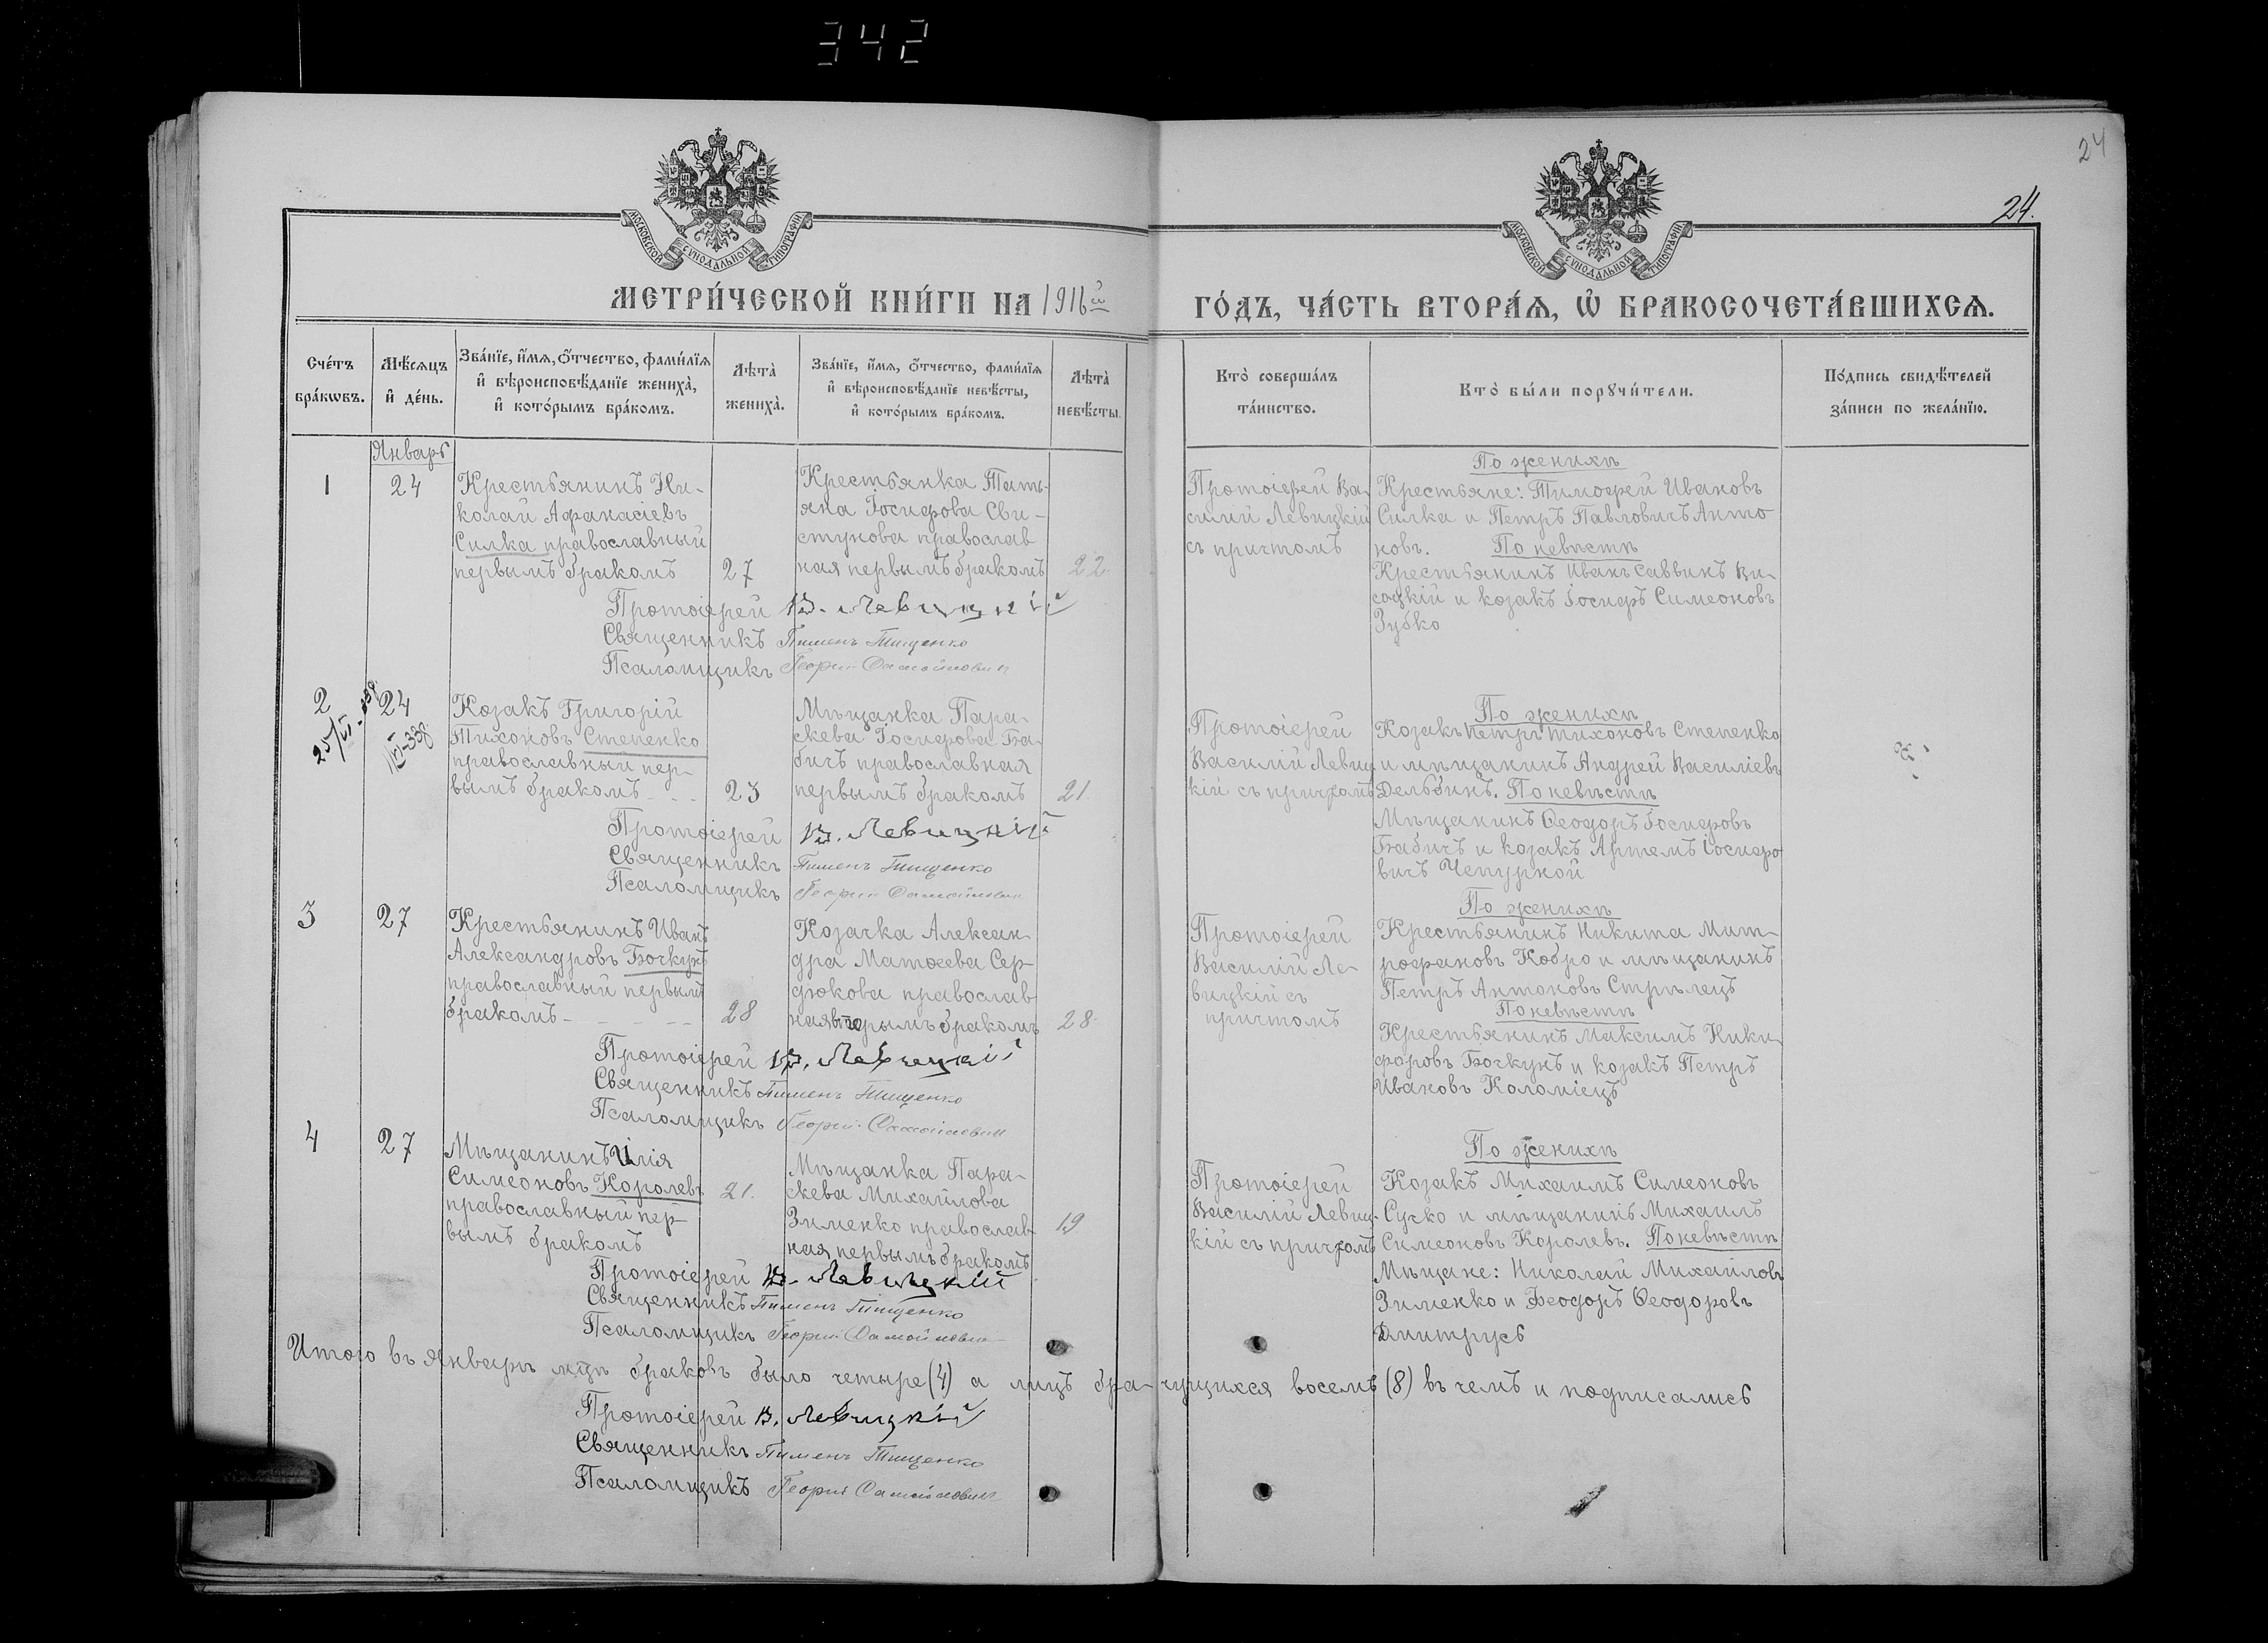 342
24
24.
МОСКОВСКОЙ СѴНОДАЛЬНОЙ ТИПОГРАФІИ
МОСКОВСКОЙ СѴНОДАЛЬНОЙ ТИПОГРАФІИ
МЕТРИ́ЧЕСКОЙ КНИ́ГИ НА 1916й
ГО́ДЪ, ЧА́СТЬ ВТОРА́Ѧ, Ѡ҆ БРАКОСОЧЕТА́ВШИХСѦ.
Сче́тъ бра́кѡвъ.
Мѣ́сѧцъ и҆ де́нь.
Зва́нїе, и҆́мѧ, ѻ҆́тчество, фами́лїѧ
и҆ вѣроисповѣ́данїе жениха̀,
и҆ кото́рымъ бра́комъ.
Лѣта̀ жениха̀.
Зва́нїе, и҆́мѧ, ѻ҆́тчество, фами́лїѧ
и҆ вѣроисповѣ́данїе невѣ́сты,
и҆ кото́рымъ бра́комъ.
Лѣта̀ невѣ́сты.
Кто̀ соверша́лъ
та́инство.
Кто̀ бы́ли порꙋчи́тели.
По́дпись свидѣ́телей
за́писи по жела́нїю.
Январь
1
24
Крестьянинъ Ни-
колай Афанасіевъ
Силка православный
первымъ бракомъ
27
Крестьянка Тать-
яна Іосифова Сви-
стунова православ
ная первымъ бракомъ
22
Протоіерей Ва-
силій Левицкій
съ причтомъ
По женихѣ
Крестьяне: Тимофей Ивановъ
Силка и Петръ Павловичъ Анто
новъ. По невѣстѣ
Крестьянинъ Иванъ Саввинъ Ви-
соцкій и козакъ Іосифъ Симеоновъ
Зубко
Протоіерей В. Левицкій
Священникъ Пименъ Тищенко
Псаломщикъ Георгій Самойлович
2
25/VI-338
24
Козакъ Григорій
Тихоновъ Степенко
православный пер-
вымъ бракомъ
23
Мѣщанка Пара-
скева Іосифова Ба-
бичъ православная
первымъ бракомъ
21
Протоіерей
Василій Левиц
кій съ причтомъ
По женихѣ
Козакъ Петръ Тихоновъ Степенко
и мѣщанинъ Андрей Василіевъ
Дельбинъ. По невѣстѣ
Мѣщанинъ Ѳеодоръ Іосифовъ
Бабичъ и козакъ Артемъ Іосифо
вичъ Чепурной
Протоіерей В. Левицкій
Священникъ Пименъ Тищенко
Псаломщикъ Георгій Самойлович
3
27
Крестьянинъ Иванъ
Александровъ Бочкунъ
православный первымъ
бракомъ
28
Козачка Алексан-
дра Матѳеева Сер-
дюкова православ
ная вторымъ бракомъ
28
Протоіерей
Василій Ле-
вицкій съ
причтомъ
По женихѣ
Крестьянинъ Никита Мит-
рофановъ Кобро и мѣщанинъ
Петръ Антоновъ Стрѣлецъ
По невѣстѣ
Крестьянинъ Максимъ Ники-
форовъ Бочкунъ и козакъ Петръ
Ивановъ Коломіецъ
Протоіерей В. Левицкій
Священникъ Пименъ Тищенко
Псаломщикъ Георгій Самойлович
4
27
Мѣщанинъ Илія
Симеоновъ Королевъ
православный пер-
вымъ бракомъ
21.
Мѣщанка Пара-
скева Михайлова
Зименко православ-
ная первымъ бракомъ
19
Протоіерей
Василій Левиц-
кій съ причтомъ
По женихѣ
Козакъ Михаилъ Симеоновъ
Сучко и мѣщанинъ Михаилъ
Симеоновъ Королевъ. По невѣстѣ
Мѣщане: Николай Михайловъ
Зименко и Ѳеодоръ Ѳеодоровъ
Дмитрусь
Протоіерей В. Левицкій
Священникъ Пименъ Тищенко
Псаломщикъ Георгій Самойлович
Итого въ Январѣ м-цѣ браковъ было четыре (4) а лицъ бра-чущихся восемь (8) въ чемъ и подписались
Протоіерей В. Левицкій
Священникъ Пименъ Тищенко
Псаломщикъ Георгій Самойлович